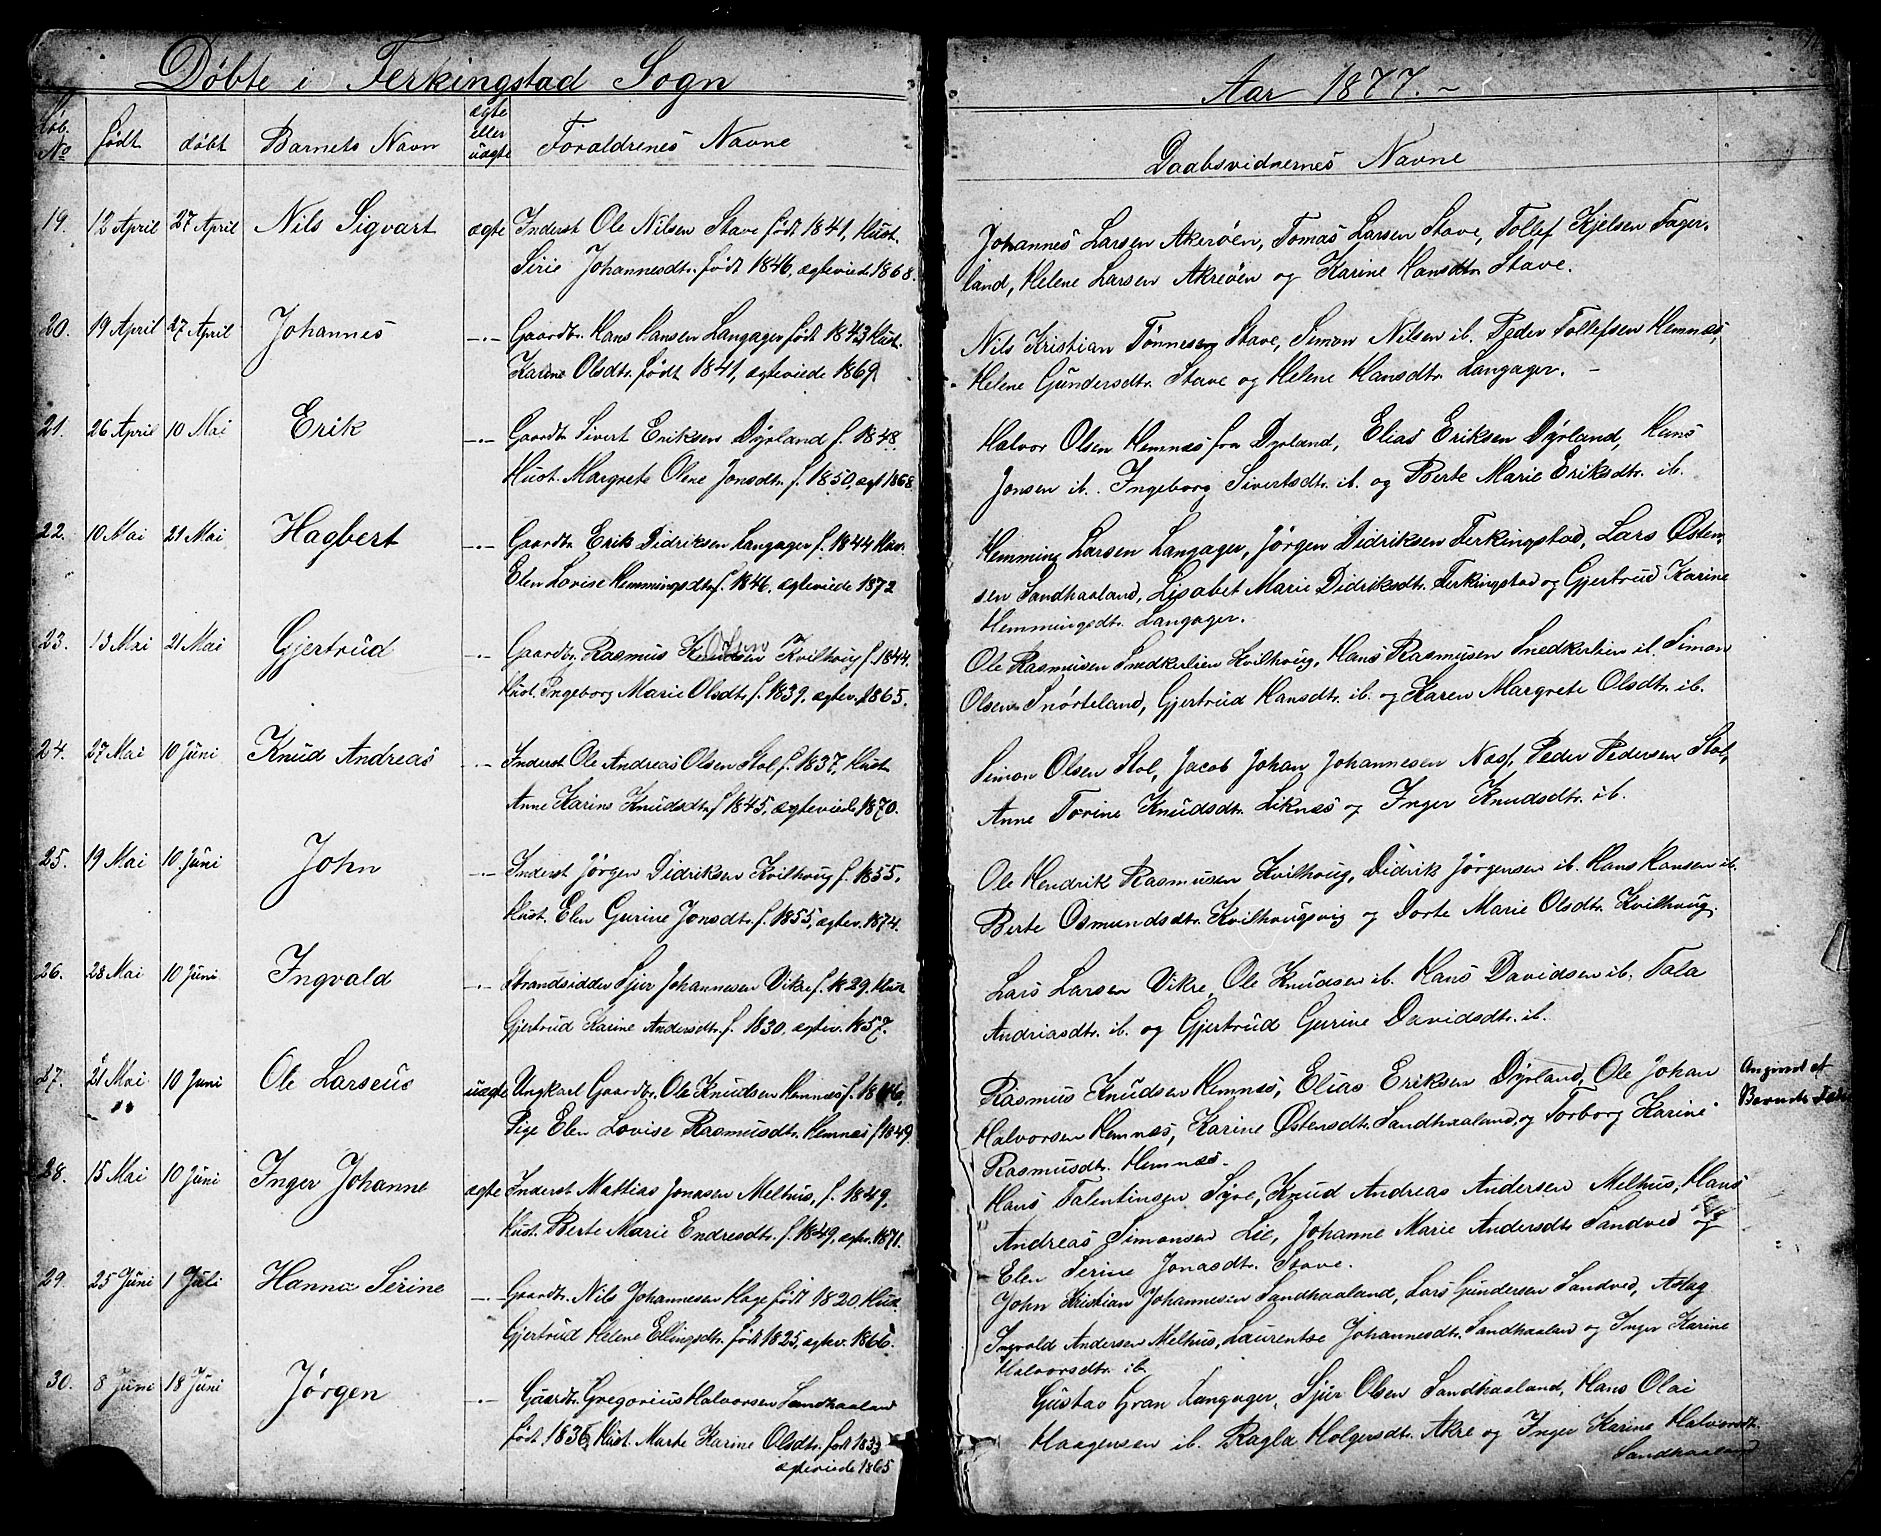 Døbte i Ferkingstad Sogn
Aar 1877.
Løb. No | født | døbt | Barnets Navn | ægte eller uægte | Foraldrenes Navne | Daabsvidnernes Navne
19. 12 April 27 April Nils Sigvart ægte Inderst Ole Nilsen Stave født 1841, Hust.
Sirie Johannesdtr. født 1846, ægteviede 1868.
Johannes Larsen Akerøen, Tomas Larsen Stave, Tollef Kjelsen Fager-
land, Helene Larsen Akreøen og Karine Hansdtr. Stave.
20. 19 April 27 April Johannes —.— Gaardbr. Hans Hansen Langager født 1843 Hust.
Karine Olsdtr. født 1841, ægteviede 1869
Nils Kristian Tønnesen Stave, Simon Nilsen ib. Peder Tollefsen Hemnæs,
Helene Gundersdtr. Stave og Helene Hansdtr. Langager. —
21. 26 April 10 Mai Erik —.— Gaardbr. Sivert Eriksen Dyrland f. 1848
Hust. Margrete Olene Jonsdtr. f. 1850, ægt 1868.
Halvor Olsen Hemnæs fra Dyrland, Elias Eriksen Dyrland, Hans
Jonsen ib. Ingeborg Sivertsdtr. ib. og Berte Marie Eriksdtr. ib.
22. 10 Mai 21 Mai Hagbert —.— Gaardbr. Erik Didriksen Langager f. 1844 Hus.
Elen Lovise Hemmingsdtr. f. 1846, ægteviede 1872
Hemming Larsen Langager, Jørgen Didriksen Ferkingstad, Lars Østen-
sen Sandhaaland, Lisabet Marie Didriksdtr. Ferkingstad og Gjertrud Karine
Hemmingsdtr. Langager.
23. 13 Mai 21 Mai Gjertrud —.— Gaardbr. Rasmus Knudsen Olsen Kvilhoug f. 1844.
Hust. Ingeborg Marie Olsdtr. f. 1839. ægtev. 1865.
Ole Rasmusen Smedkulien Kvilhoug, Hans Rasmusen Smedkulien ib. Simon
Olsen Snørteland, Gjertrud Hansdtr. ib. og Karen Margrete Olsdtr. ib.
24. 27 Mai 10 Juni Knud Andreas —.— Inderst Ole Andreas Olsen Stol f. 1837, Hust
Anne Karine Knudsdtr. f 1845, ægteviede 1870.
Simon Olsen Stol, Jacob Johan Johannesen Næs, Peder Pedersen Stol,
Anne Torine Knudsdtr. Liknæs og Inger Knudsdtr. ib.
25. 19 Mai 10. Juni John —.— Inderst Jørgen Didriksen Kvilhoug f. 1855,
Hust. Elen Gurine Jonsdtr. f. 1855, ægtev. 1874.
Ole Hendrik Rasmusen Kvilhoug, Didrik Jørgensen ib. Hans Hansen ib.
Berte Osmundsdtr. Kvilhougsvig og Dorte Marie Olsdtr. Kvilhoug.
26. 28 Mai 10 Juni Ingvald —.— Strandsidder Sjur Johannesen Vikre f. 1829. Hust
Gjertrud Karine Andersdtr. f. 1830. ægtev. 1857.
Lars Larsen Vikre, Ole Knudsen ib. Hans Davidsen ib. Tala
Andriasdtr. ib. og Gjertrud Gurine Davidsdtr. ib.
27. 21 Mai 10 Juni Ole Larseus uægte Ungkarl Gaardbr. Ole Knudsen Hemnæs f. 1846,
Pige Elen Lovise Rasmusdtr. Hemnæs f 1849
Rasmus Knudsen Hemnæs, Elias Eriksen Dyrland, Ole Johan
Halvorsen Hemnæs, Karine Østensdtr. Sandhaaland og Torborg Karine
Rasmusdtr. Hemnæs.
Angived at
Barnets Fader
28. 15 Mai 10 Juni Inger Johanne ægte Inderst Mattias Jonasen Melhus, f. 1849,
Hust. Berte Marie Endresdtr. f. 1849, ægtev. 1871.
Hans Talentinsen Syre, Knud Andreas Andersen Melhus, Hans
Andreas Simonsen Lie, Johanne Marie Andersdtr Sandved og
Elen Serine Jonasdtr. Stave.
29. 25 Juni 1 Juli Hanna Serine —.— Gaardbr. Nils Johannesen Hage født 1820 Hust.
Gjertrud Helene Ellingsdtr. født 1825, ægtev. 1866.
John Kristian Johannesen Sandhaaland, Lars Gundersen Sandved, Aslag
Ingvald Andersen Melhus, Laurentse Johannesdtr. Sandhaaland og Inger Karine
Halvorsdtr. ib.
30. 8 Juni 18 Juni Jørgen —.— Gaardbr. Gregorius Halvorsen Sandhaaland
født 1836, Hust. Marte Karine Olsdtr. født 1833
ægteviede 1865
Gustav Gran Langager, Sjur Olsen Sandhaaland, Hans Olai
Haagensen ib. Ragla Holgersdtr. Akre og Inger Karine Halvorsdtr.
Sandhaaland